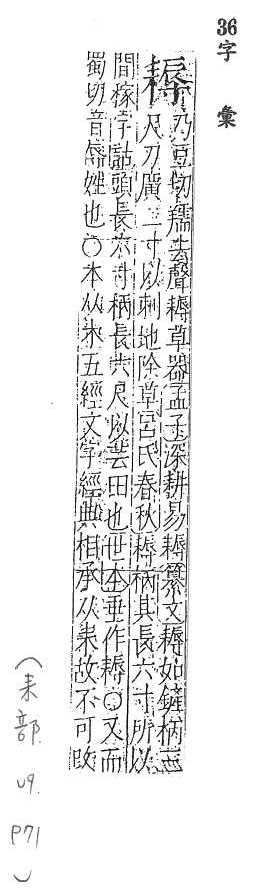 36字彙
耨 乃豆切獳去聲耨草器孟子深耕易耨纂文耨如鏟柄三
尺刃廣二寸以刺地除草呂氏春秋耨柄其長六寸所以
間稼字詁頭長六寸柄長六尺以芸田也世本垂作耨○又而
蜀切音辱姓也○本从木五經文字經典相承从耒故不可改
(耒部 U9. P71)